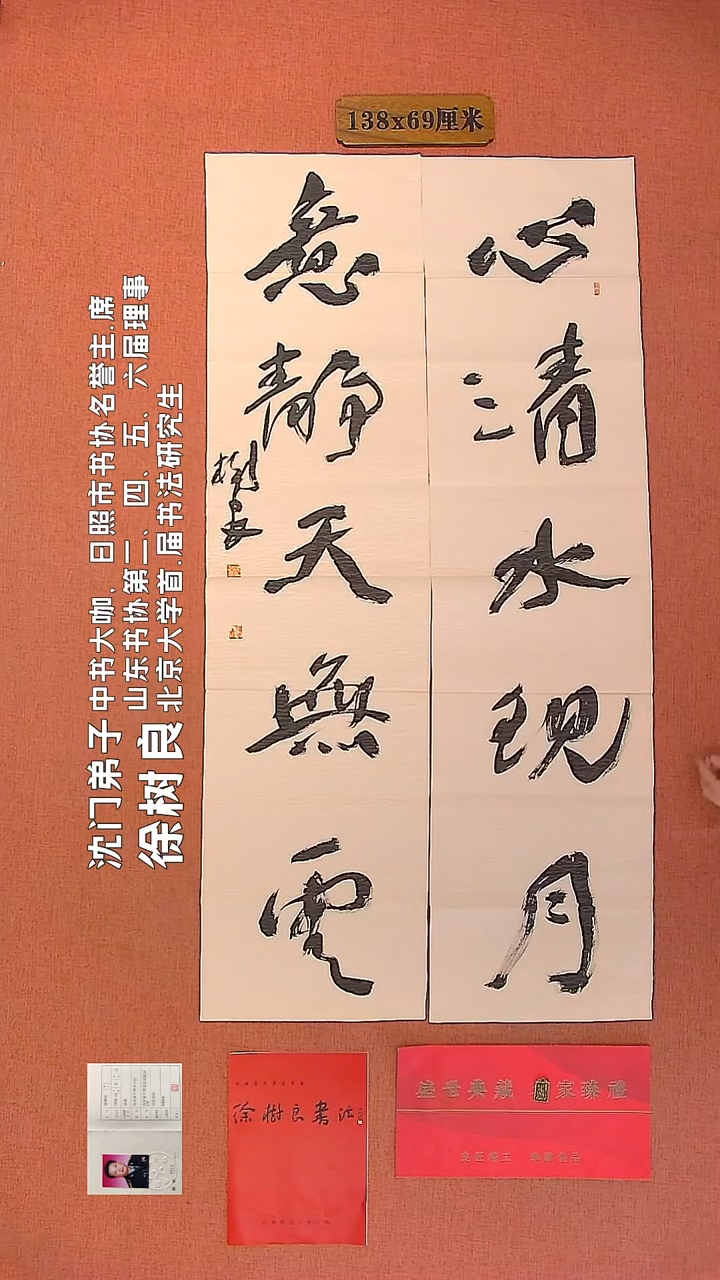 138x69厘米
心清水現月
意静天無雲
樹良
沈门弟子
徐树良
中书大咖，日照市书协名誉主.席
山东书协第二、四、五、六届理事
北京大学首.届书法研究生
徐樹良書法
盛世典藏 國家臻禮